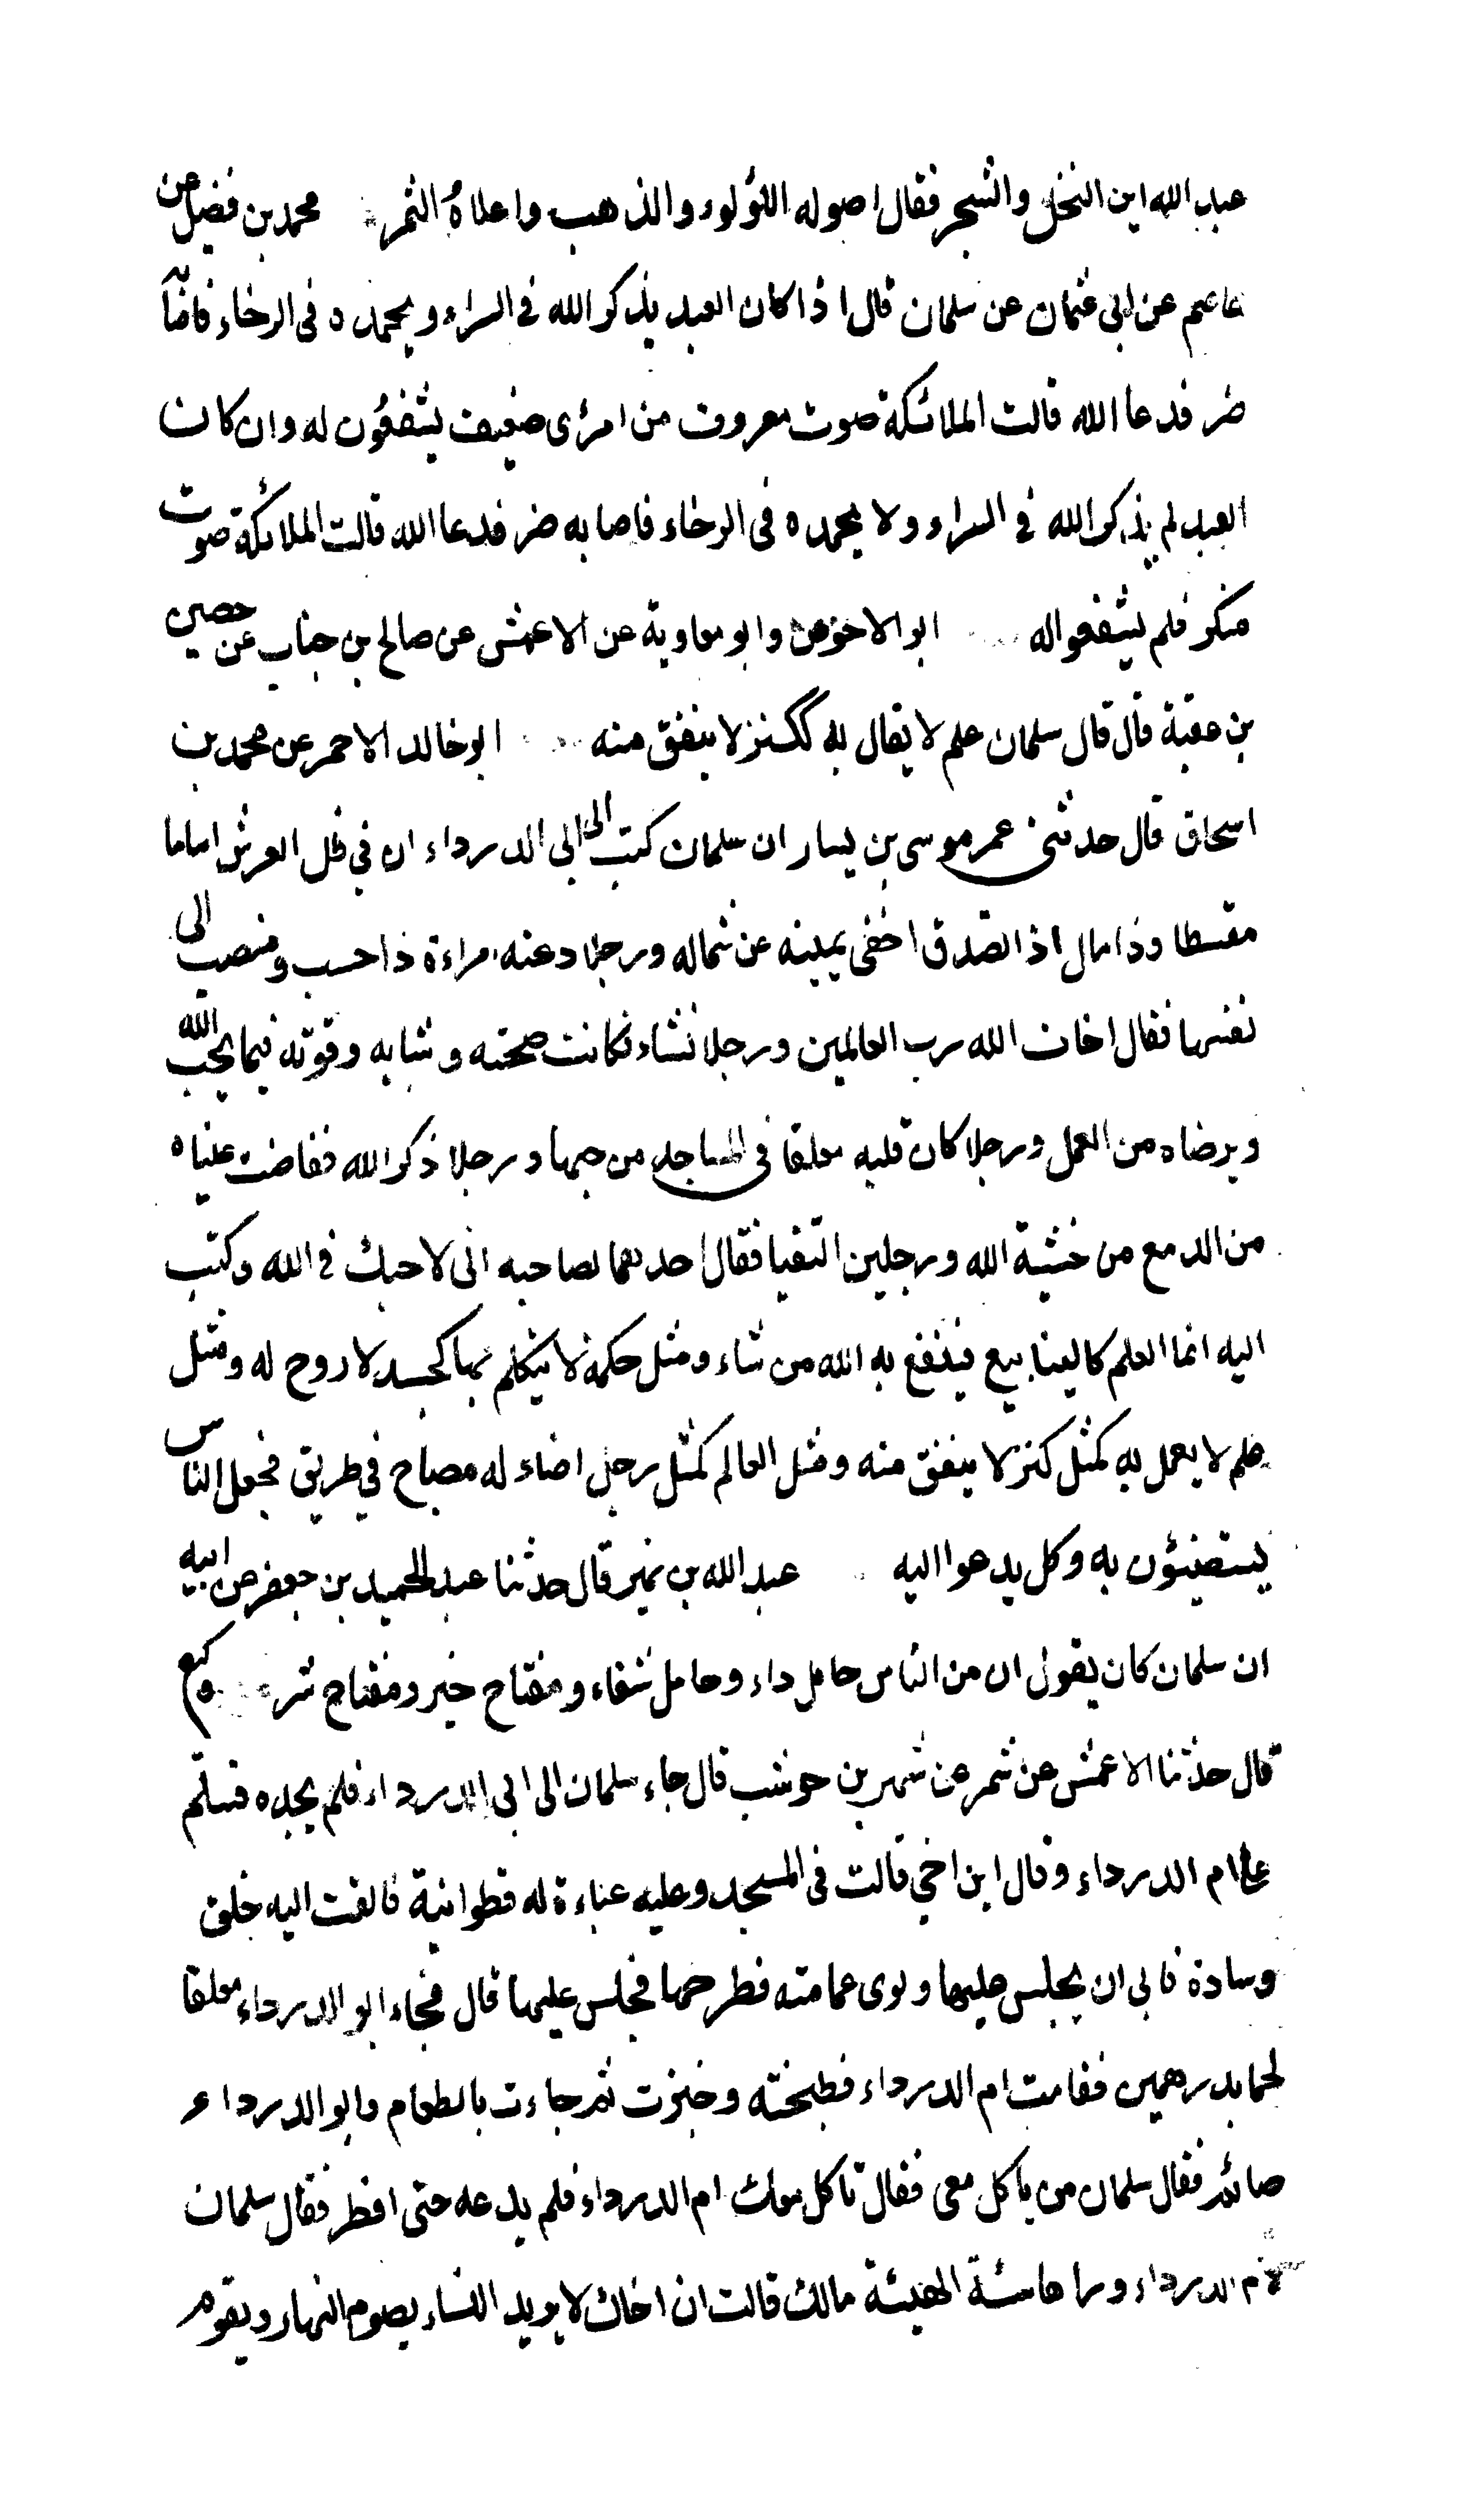 عبد الله اين النخل والشجر فقال اصوله اللؤلوء والذهب واعلاه الثمر محمد بن فضيل عن
عاصم عن ابى عثمان عن سلمان قال اذا كان العبد يذكر الله فى السراء ويحمده فى الرخاء فاصابه
ضر فدعا الله قالت الملائكة صوت معروف من امرئ ضعيف يشفعون له وان كان
العبد لم يذكر الله فى السراء ولا يحمده فى الرخاء فاصابه ضر فدعا الله قالت الملائكة صوت
منكر فلم يشفعوا له ابو الاحوص وابو معاوية عن الاعمش عن صالح بن جناب عن حصين
بن عقبة قال قال سلمان علم لا يقال به ككنز لا ينفق منه ابو خالد الاحمر عن محمد بن
اسحاق قال حدثنى عمر موسى بن يسار ان سلمان كتب الى ابى الدرداء ان فى ظل العرش اماما
مقسطا وذا مال اذا تصدق اخفى يمينه عن شماله ورجلا دعته امراءة ذا حسب ومنصب الى
نفسها فقال اخاف الله رب العالمين ورجلا نشاء فكانت صحته وشبابه وقوته فيما يحب الله
ويرضاه من العمل ورجلا كان قلبه معلقا فى المساجد من حبها ورجلا ذكر الله ففاضت عيناه
من الدمع من خشية الله ورجلين التقيا فقال احدهما لصاحبه انى لاحبك فى الله وكتب
اليه انما العلم كالينابيع فينفع به الله من شاء ومثل حكمة لا يتكلم بها كجسد لا روح له ومثل
علم لا يعمل به كمثل كنز لا ينفق منه ومثل العالم كمثل رجل اضاء له مصباح فى طريق فجعل الناس
يستضيئون به وكل يدعوا اليه عبد الله بن نمير قال حدثنا عبد الحميد بن جعفر عن ابيه
ان سلمان كان يقول ان من الناس حامل داء وحامل شفاء ومفتاح خير ومفتاح شر وكيع
قال حدثنا الاعمش عن شمر عن شهر بن حوشب قال جاء سلمان الى ابى الدرداء فلم يجده فسلم
على ام الدرداء وقال اين اخى قالت فى المسجد وعليه عباءة له قطوانية فالقت اليه خلق
وسادة فابى ان يجلس عليها ولوى عمامته فطرحها فجلس عليها قال فجاء ابو الدرداء معلقا
لحما بدرهمين فقامت ام الدرداء فطبخته وخبزت ثم جاءت بالطعام وابو الدرداء
صائم فقال سلمان من ياكل معى فقال تاكل معك ام الدرداء فلم يدعه حتى افطر فقال سلمان
لام الدرداء وراها سئة الهيئة مالك قالت ان اخاك لا يريد النساء يصوم النهار ويقوم